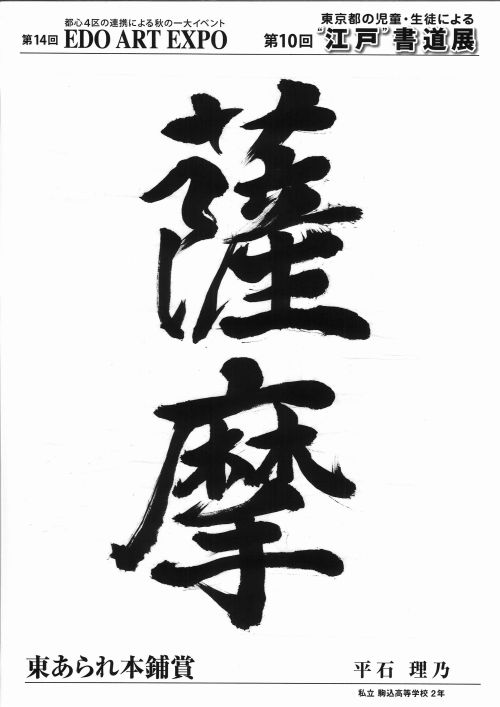 都心4区の連携による秋の一大イベント
第14回 EDO ART EXPO
東京都の児童・生徒による
第10回 “江戸”書道展
薩摩
東あられ本鋪賞
平石 理乃
私立 駒込高等学校 2年